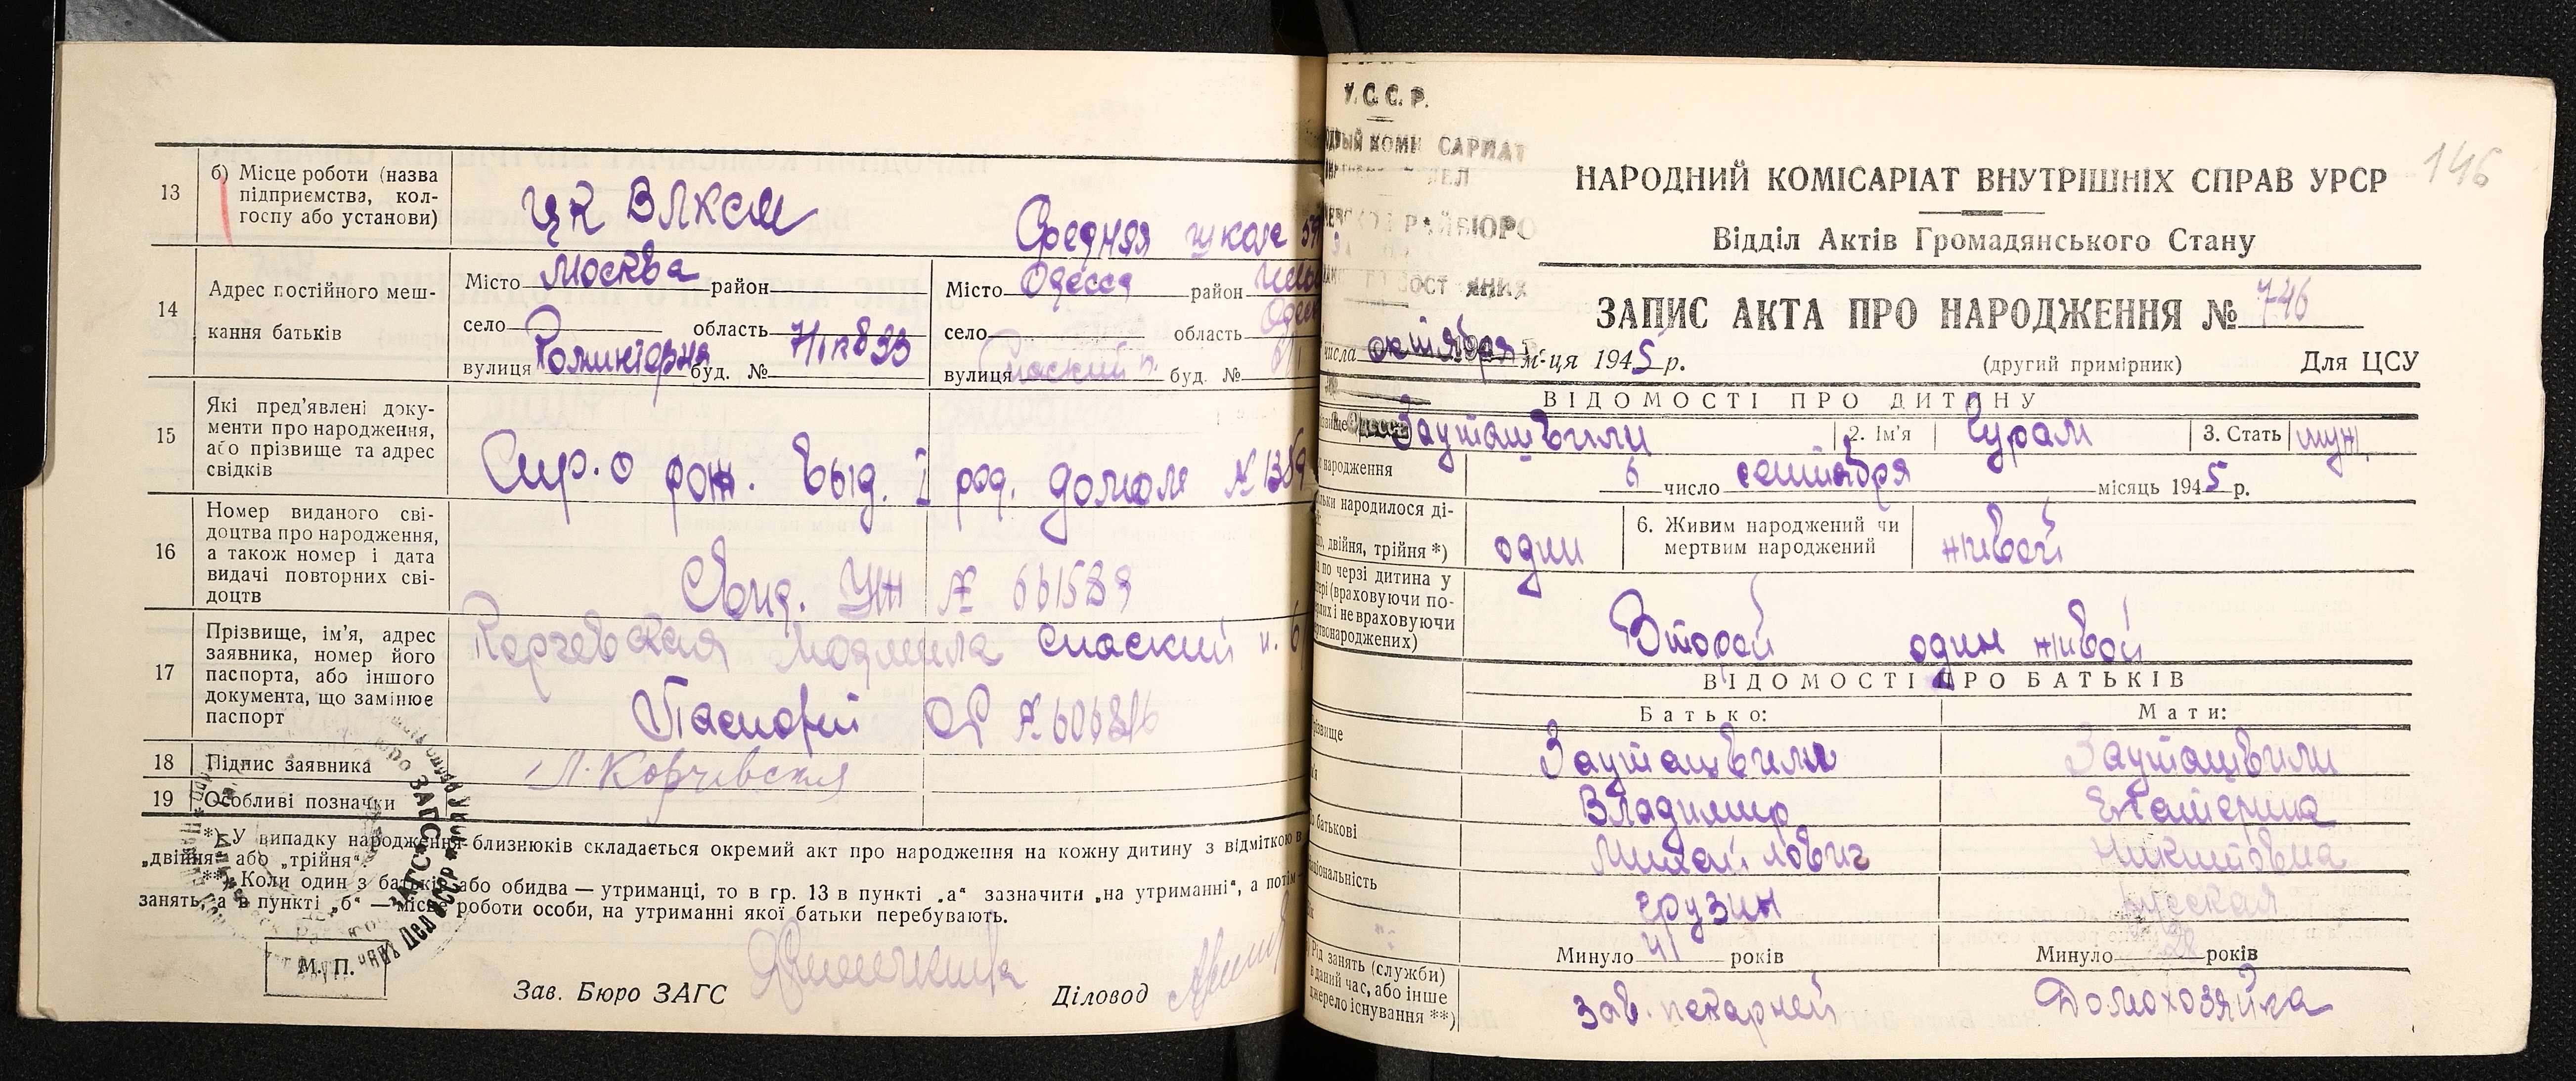 13
б) Місце роботи (назва
підприємства, кол-
госпу або установи)
ЦК ВЛКСМ
Средняя школа
14
Адрес постійного меш-
кання батьків
Місто Москва район
село область
вулиця буд. №
Місто Одесса район
село область
вулиця Спаский п. буд. №
15
Які пред'явлені доку-
менти про народження,
або прізвище та адрес
свідків
Спр. о рож. выд. I род. домом №
16
Номер виданого сві-
доцтва про народження,
а також номер і дата
видачі повторних сві-
доцтв
Свид. УЖ № 661589
17
Прізвище, ім'я, адрес
заявника, номер його
паспорта, або іншого
документа, що замінює
паспорт
Корчевская Людмила Спаский п. 6
Паспорт № 606816
18
Підпис заявника
Л. Корчевская
19
Особливі позначки
*) У випадку народження близнюків складається окремий акт про народження на кожну дитину з відміткою
„двійня" або „трійня".
**) Коли один з батьків або обидва — утриманці, то в гр. 13 в пункті „а" зазначити „на утриманні", а потім
занять, а в пункті „б" — місце роботи особи, на утриманні якої батьки перебувають.
М. П.
Зав. Бюро ЗАГС
Діловод
У.С.С.Р.
146
НАРОДНИЙ КОМІСАРІАТ ВНУТРІШНІХ СПРАВ УРСР
Відділ Актів Громадянського Стану
ЗАПИС АКТА ПРО НАРОДЖЕННЯ № 746
числа октября м-ця 1945 р.
(другий примірник) Для ЦСУ
ВІДОМОСТІ ПРО ДИТИНУ
Зауташвили
2. Ім'я Гурам
3. Стать муж.
народження
6 число сентября місяць 1945 р.
народилося ді-
двійня, трійня *)
один
6. Живим народжений чи
мертвим народжений
живой
по черзі дитина у
(враховуючи по-
і не враховуючи
народжених)
Второй один живой
ВІДОМОСТІ ПРО БАТЬКІВ
Батько:
Мати:
Зауташвили
Зауташвили
Владимир
Екатерина
батькові
Михайлович
Никитовна
грузин
русская
Минуло 41 років
Минуло 28 років
Рід занять (служби)
в даний час, або інше
джерело існування **)
зав. пекарней
Домохозяйка